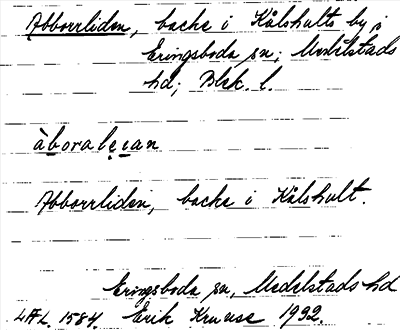 Abborrliden, backe i Kålshults by i
Eringsboda sn; Medelstads
hd; Blek. l.
àboralean
Abborrliden, backe i Kålshult.
Eringsboda sn, Medelstads hd
LAL. 1584. Erik Kruuse 1932.